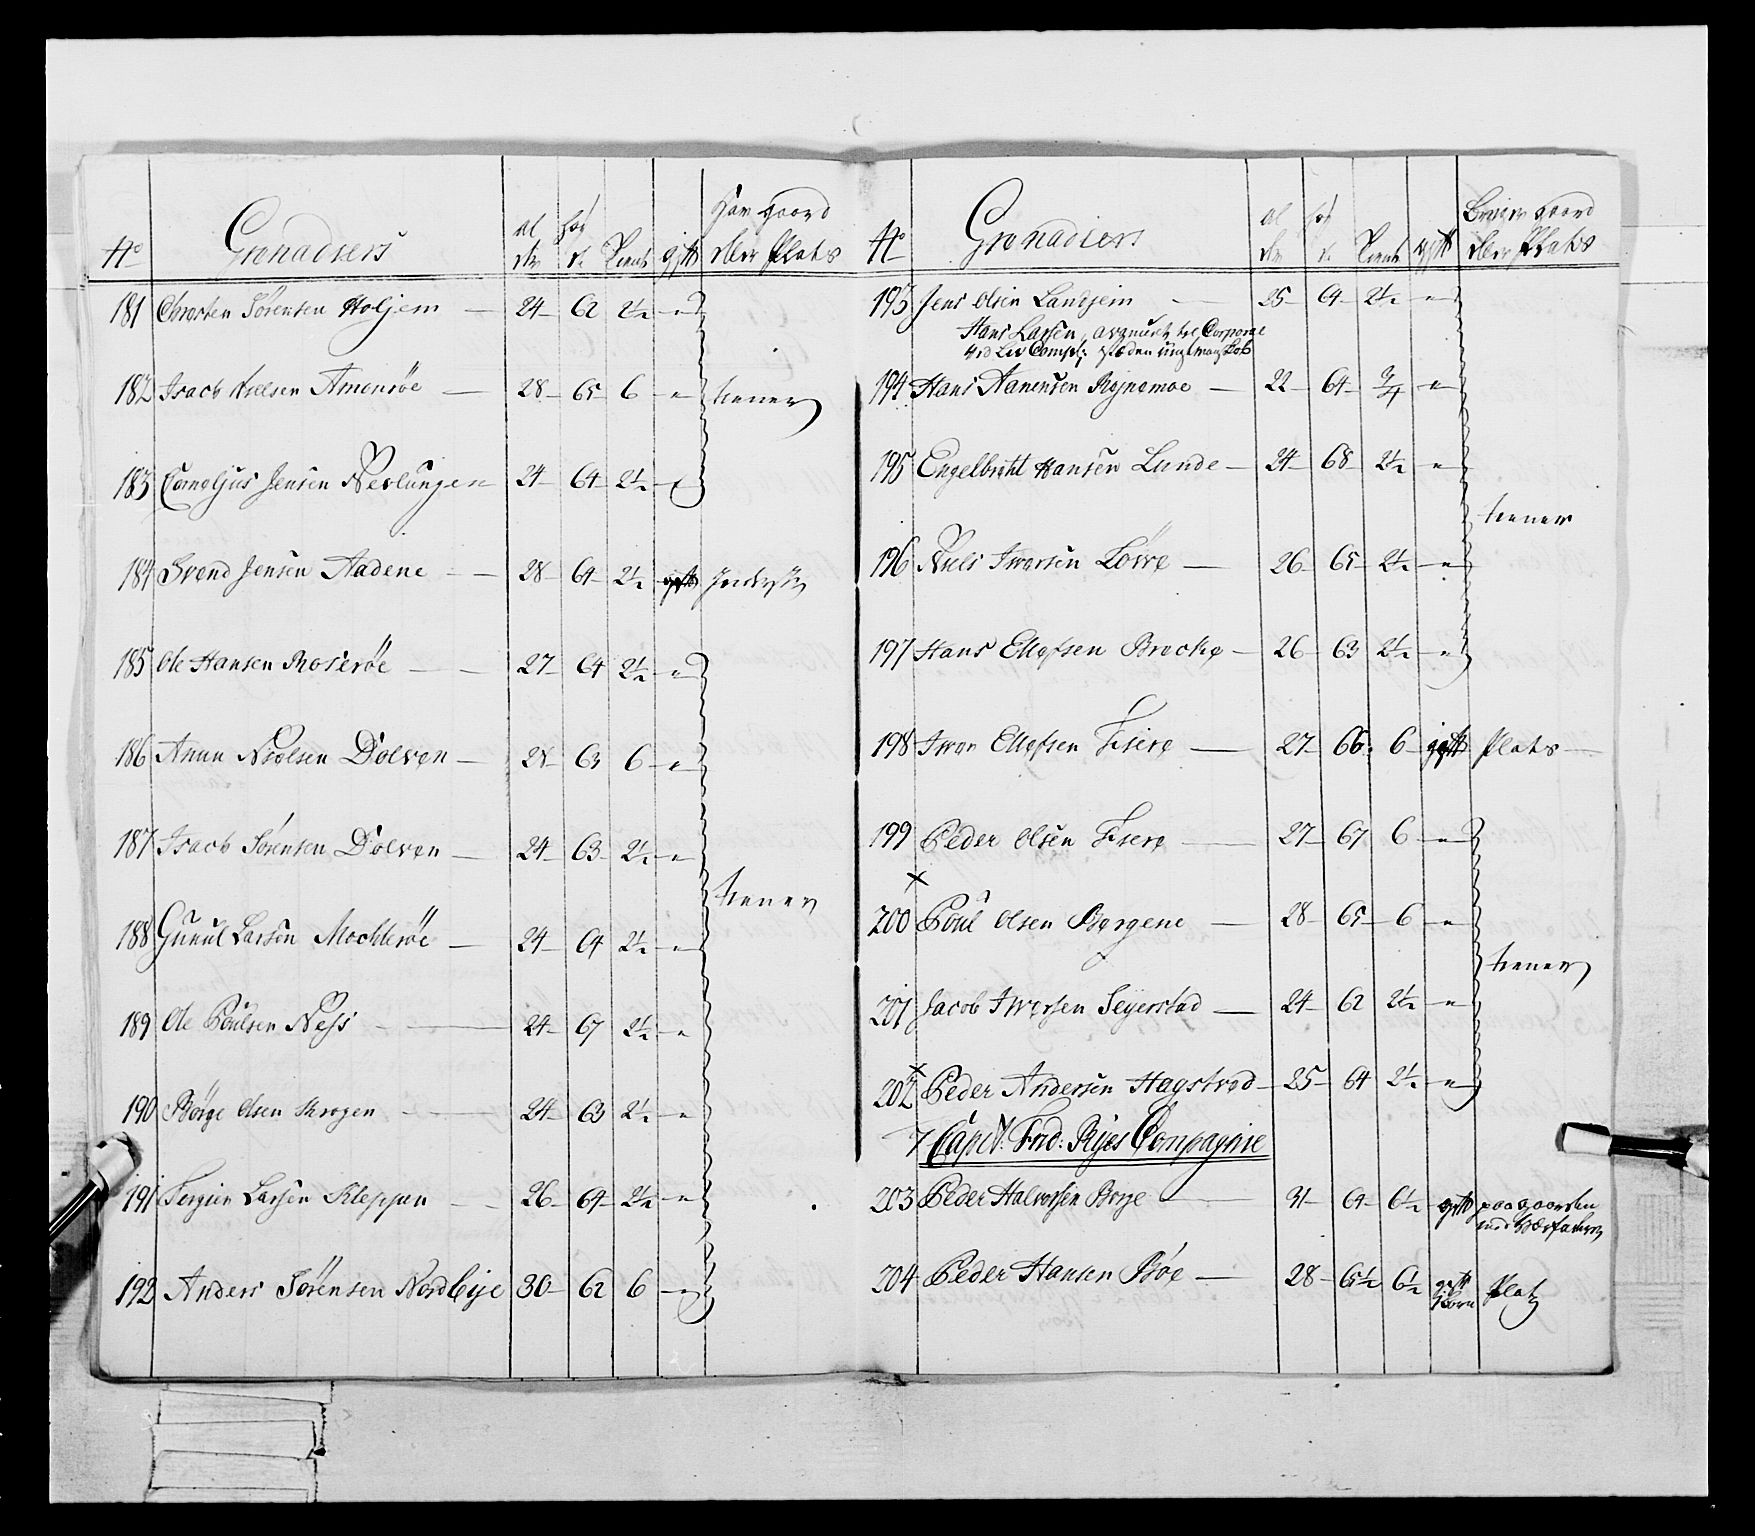 No Gronadiers al der høy de Tieent gift Har gaard eller Plats
181 Christen Sörensen Holjem — 24 — 62 2½ — "
182 Isach Nielsen Amonröe — 28 — 65 — 6 — " tiener
183 Corneljus Jensen Nevlungen 24 — 64 2½ — "
184 Svend Jensen Aadene — 28 — 64 — 2½ gift
185 Ole Hansen Roseröe — 27 — 64 2½ — "
186 Anun Nielsen Dolven — 63 6 — "
187 Isach Sörensen Dolven — 24 — 63 — 2½ — "
tiener
188 Gunul Larsen Mochleröe — 24 — 64 2½ — "
189 Ole Poulsen Ness — 24 — 67 2½ "
190 Börge Olsen Krogen — 24 — 63 2½ — "
191 Jörgen Larsen Kleppan — 26 — 64 — 2½ — "
192 Anders Sörensen Nordbye 30 — 62 6 — "
No Gronadiers al der høy de Tieent gift Bruger gaard eller Plats
193 Jens Olsen — 25 — 64 — 2½ — "
Hans Larsen, til Corporal
ved Liv Comp:
194 Hans Aanensen Rojnomoe — 22 — 64 — ¾ — "
195 Engelbreht Hansen Lunde — 24 — 68 — 2½ — "
tiener
196 Niels Iwersen Lövve — 26 — 65 — 2½ — "
197 Hans Ellefsen Brecke — 26 — 63 — 2½ — "
198 Iwer Ellefsen — 27 — 66 — 6 — gift Plats —
199 Peder Olsen — 27 — 67 6 — "
×
200 Poul Olsen Bergene — 28 — 65 — 6 — "
tiener
201 Jacob Iwersen Seyerstad — 24 — 62 2½ — "
×
202 Peder Andersen Hagstved — 25 — 64 2½ — "
7 Capt: Frid: Rÿes Compagnie
203 Peder Halvorsen Borge — 31 — 64 — 6½ — gift paa gaarden
med Værfaderen
204 Peder Hansen Böe — 28 — 65½ 6½ gift
1 Barn Platz